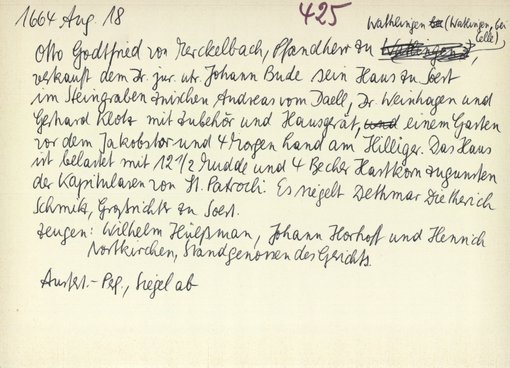 1664 Aug. 18 425 Wathlingen (Watlingen, bei Celle)
Otto Godtfried von Merckelbach, Pfandherr zu
verkauft dem Dr. jur. utr. Johann Bude sein Haus zu Soest
im Steingraben zwischen Andreas vom Daell, Dr. Weinhagen und
Gerhard Klotz mit Zubehör und Hausgerät, und einem Garten
vor dem Jakobstor und 4 Morgen Land am Hilliger. Das Haus
ist belastet mit 12 1/2 Mudde und 4 Becher Hartkorn zugunsten
der Kapitularen von St. Patrocli. Es siegelt Dethmar Dietherich
Schmitz, Großrichter zu Soest.
Zeugen: Wilhelm Hülßman, Johann Horhoff und Henrich
Nortkirchen, Standgenossen des Gerichts.
Ausfert.-Perg., Siegel ab